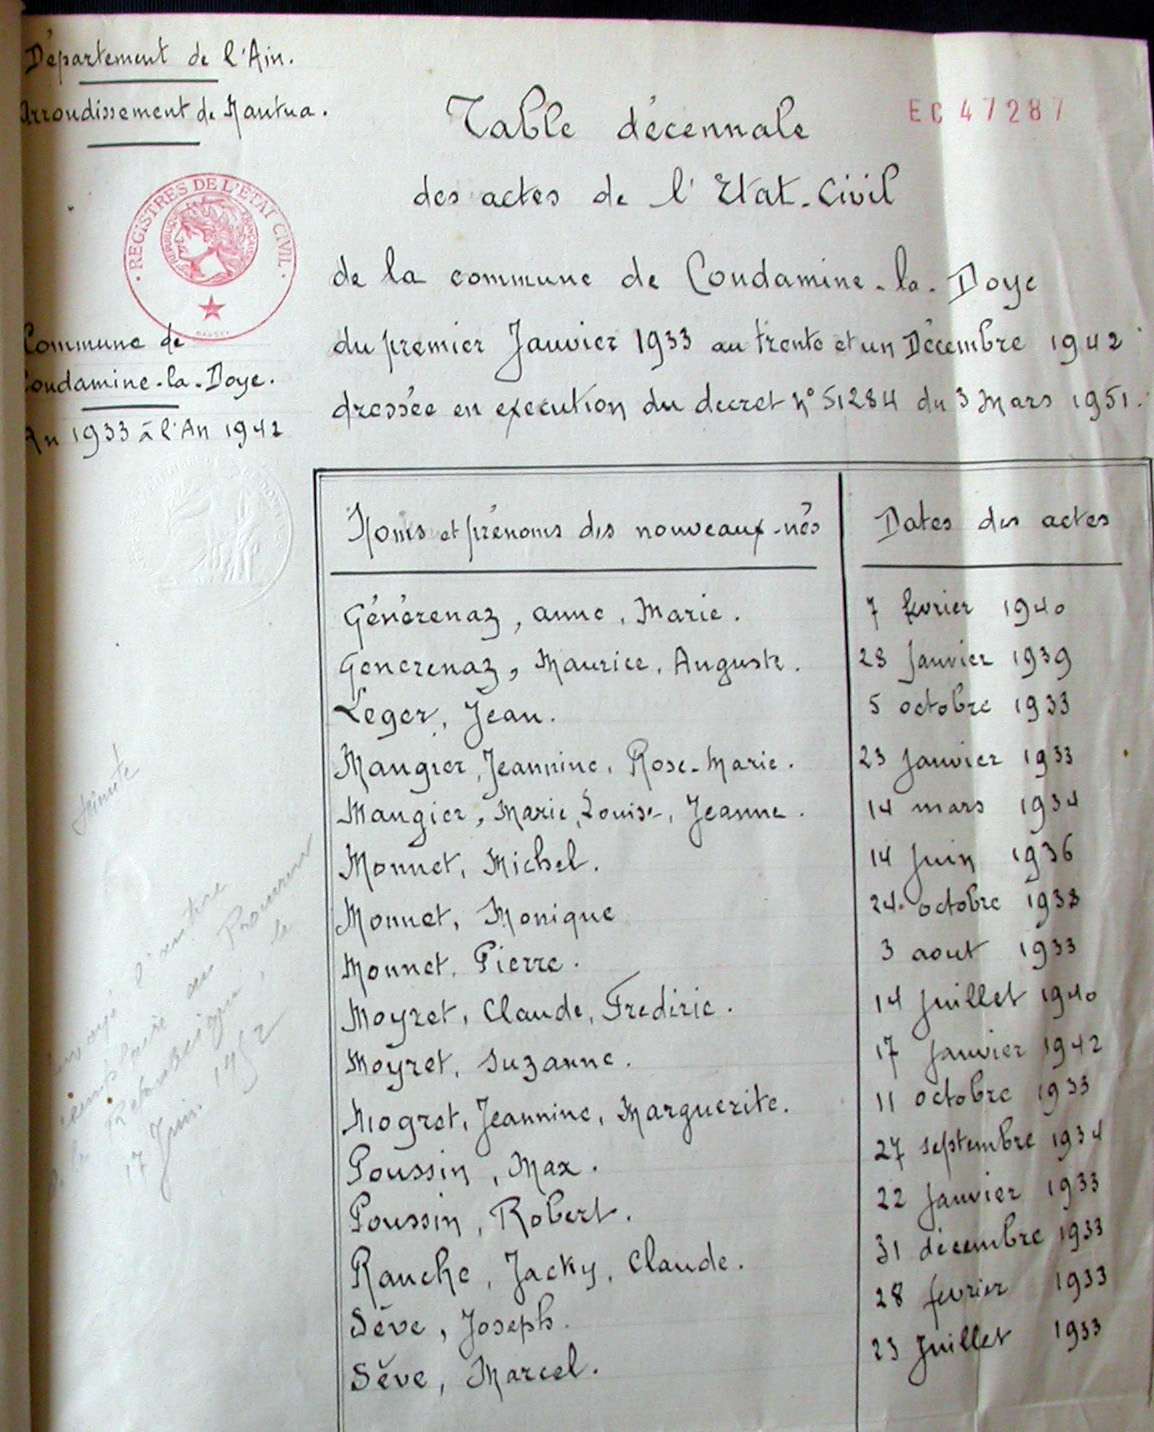 Département de l'Ain.
Arrondissement de Nantua.
Table décennale
EC 47287
des actes de l'Etat-Civil
REGISTRES DE L'ÉTAT CIVIL
de la commune de Condamine-la-Doye
du premier Janvier 1933 au trente et un Décembre 1942
dressée en execution du decret N° 51284 du 3 Mars 1951.
Commune de
Condamine-la-Doye.
An 1933 à l'An 1942
Noms et prénoms des nouveaux-nés
Dates des actes
Générenaz, anne, Marie. 7 fevrier 1940
Generenaz, Maurice, Auguste. 28 Janvier 1939
Leger, Jean. 5 octobre 1933
Maugier, Jeannine, Rose-Marie. 23 Janvier 1933
Maugier, Marie, Louise, Jeanne. 14 mars 1934
Monnet, Michel. 14 Juin 1936
Monnet, Monique 24 octobre 1938
Monnet, Pierre. 3 aout 1933
Moyret, Claude, Frederic. 14 Juillet 1940
Moyret, Suzanne. 17 Janvier 1942
Mogret, Jeannine, Marguerite. 11 octobre 1933
Poussin, Max. 27 septembre 1934
Poussin, Robert. 22 Janvier 1933
Ranche, Jacky, Claude. 31 décembre 1933
Sève, Joseph. 28 fevrier 1933
Sève, Marcel. 23 Juillet 1933
Minute
envoyé l'autre
exemplaire au Procureur
de la République, le
17 Juin 1952